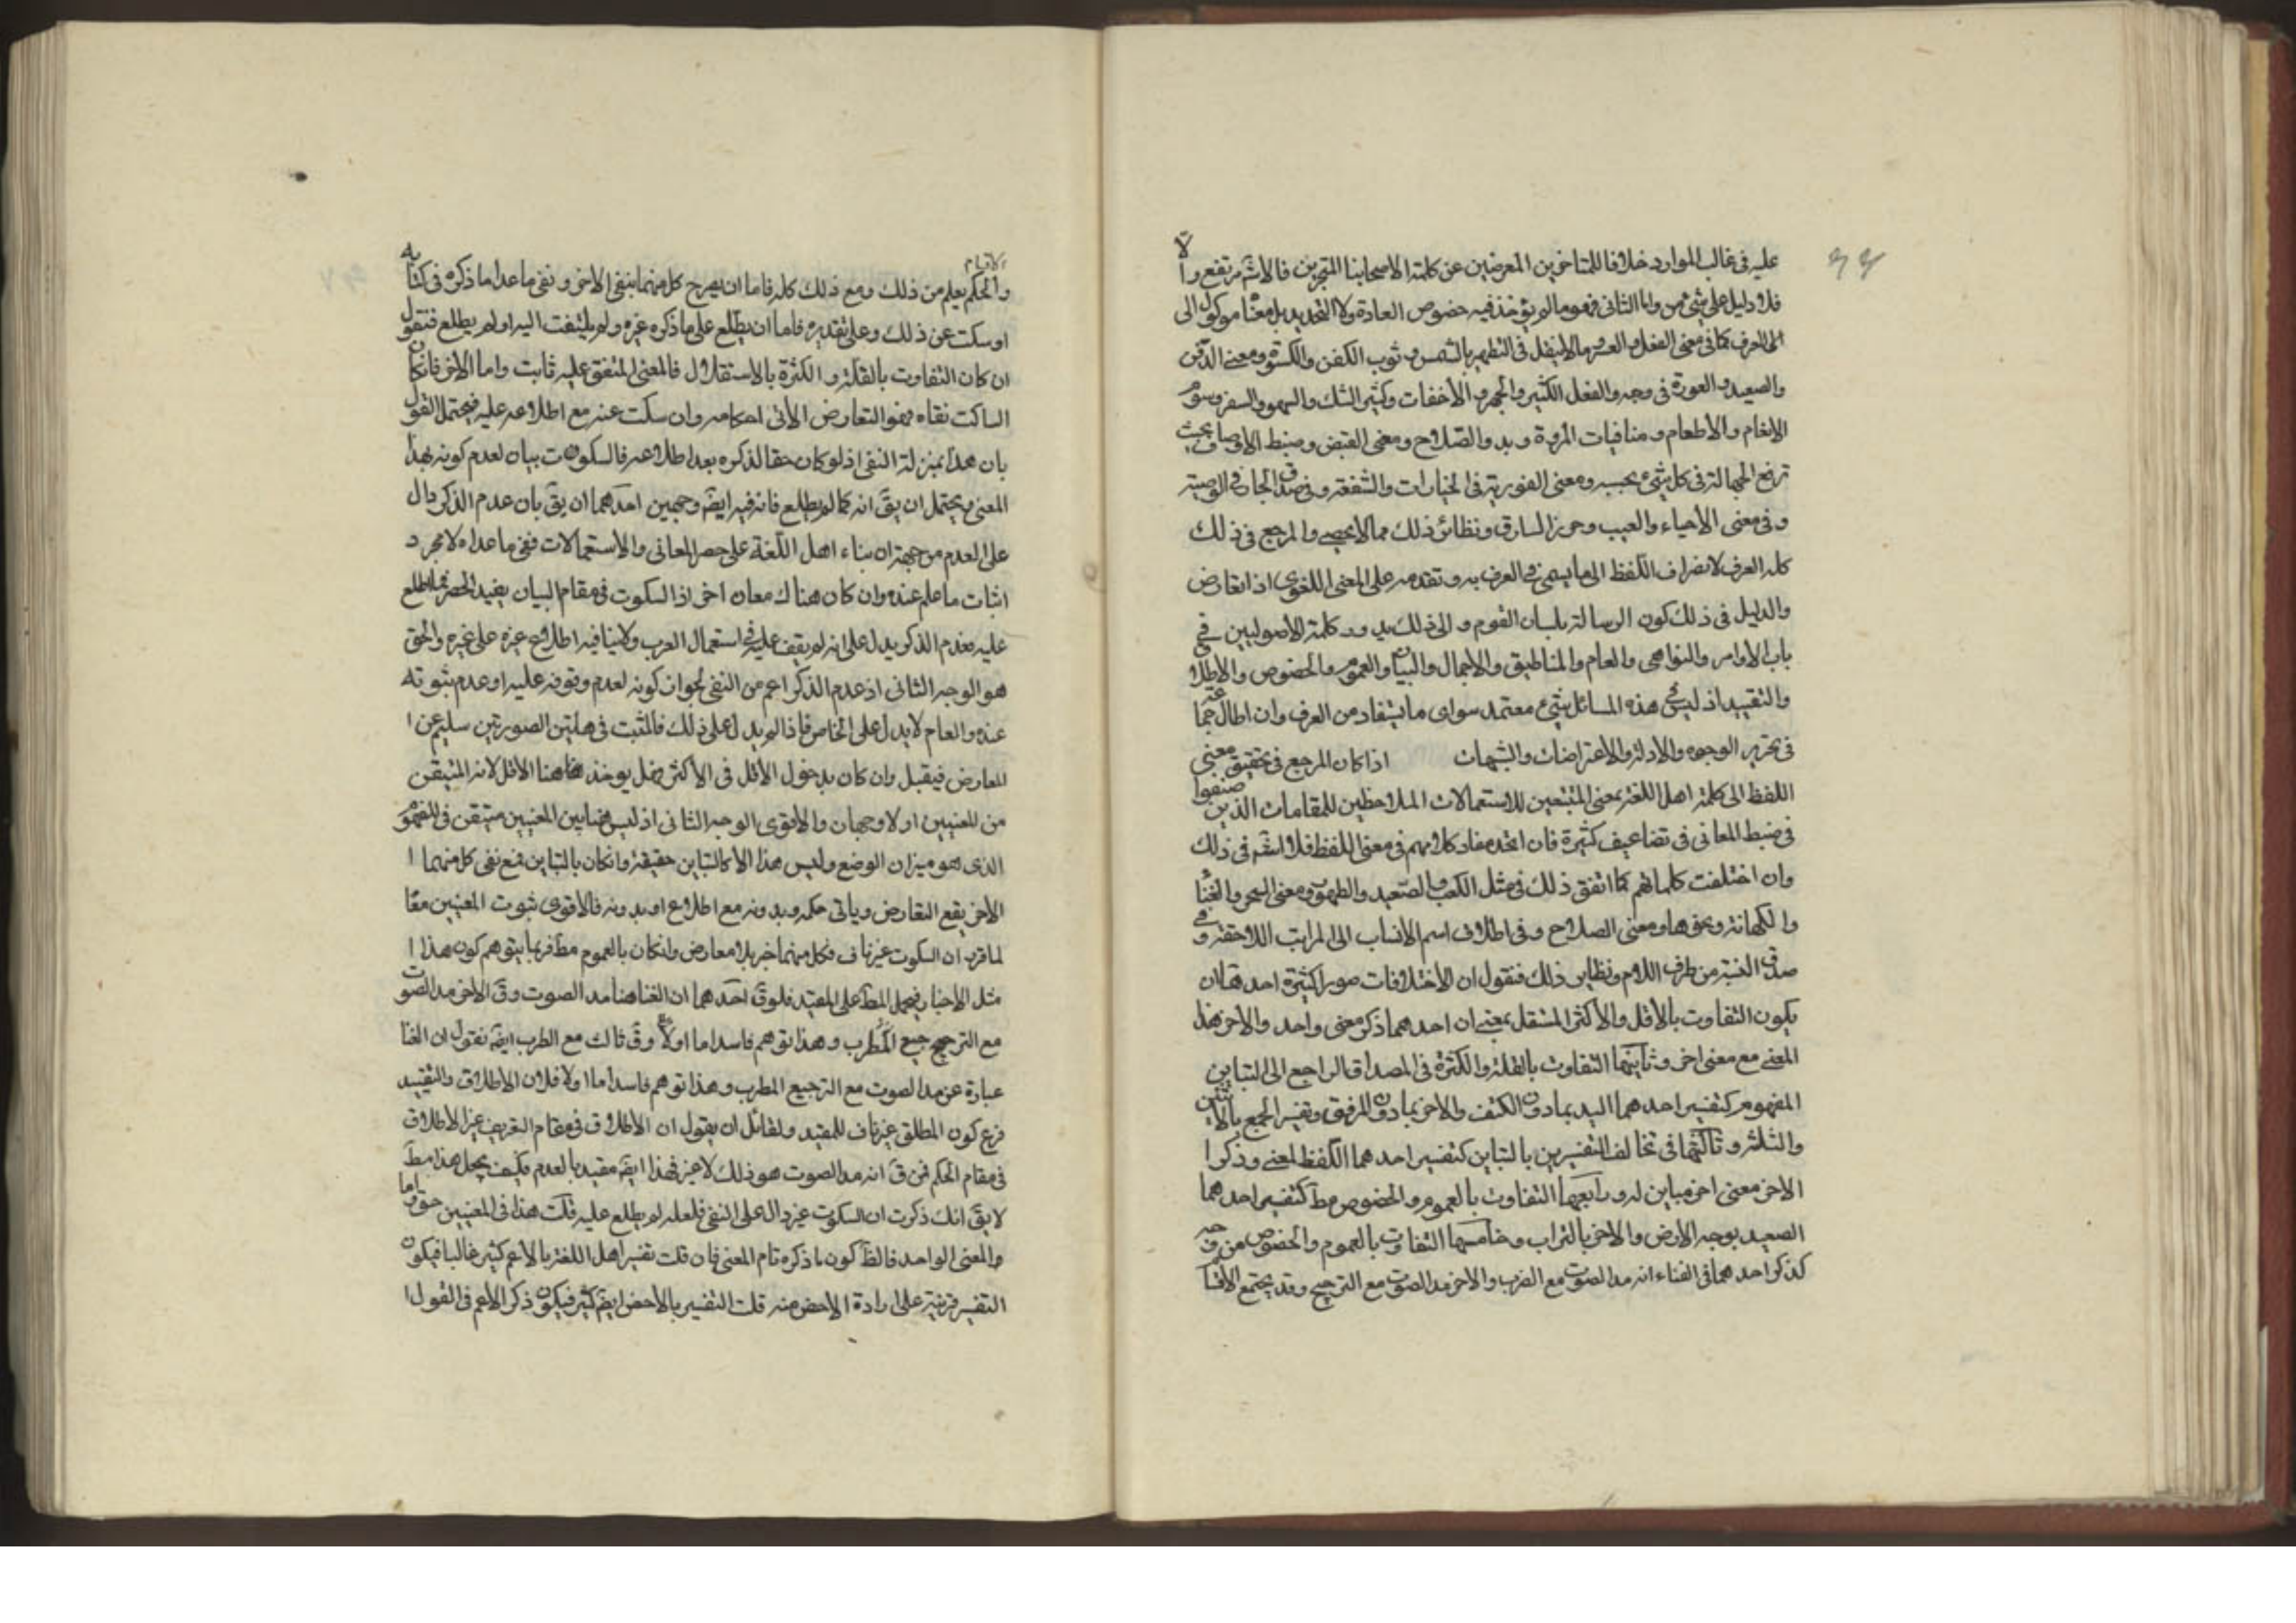 عليه فى غالب الموارد خلافا للمتاخرين المعرضين عن كلمة الاصحابنا المتبحرين فالاشتم مرتفع والا
فلا دليل على شئ من واما الثانى فهو ما لم يؤخذ فيه خصوص العادة ولا التحديد بل معناه موكول الى
الى العرف كما فى معنى الفعل و مالاينقل فى التطهير بالشمس و ثوب الكفن والكسوة ومعنى الدفن
والصعيد والعورة فى وجه والفعل الكثير والجهر و الاخفات وكثير الشك والسهو والسفر وسوم
الانعام والاطعام و منافيات المروة و بدو الصلاح ومعنى القبض و ضبط الاوصاف بحيث
ترتفع الجهالة فى كل شئ بحسبه ومعنى الفورية فى الخيارات والشفعة و فى صدق الجار فى الوصية
و فى معنى الاحياء والعيب وحرز السارق ونظائر ذلك مما لا يحصى والمرجع فى ذلك
كله العرف لانصراف اللفظ الى ما يسمى فى العرف به و تقدمه على المعنى اللغوى اذا تعارض
والدليل فى ذلك كون الرسالة بلسان القوم و الى ذلك كلمة الاصوليين فى
باب الاوامر والنواهى والعام والمناطيق والاجمال والبيان والعموم والخصوص والاطلا
والتقييد اذ ليس فى هذه المسائل شئ معتمد سوى ما يستفاد من العرف وان اطال جماعة
فى تحرير الوجوه والادلة والاعتراضات والشبهات اذا كان المرجع فى تحقيق معنى
اللفظ الى كلمة اهل اللغة بمعنى المتتبعين للاستعمالات الملاحظين للمقامات الذين صنفوا
فى ضبط المعانى فى تضاعيف كثيرة فان اتحد مفاد كلامهم فى معنى اللفظ فلا فى ذلك
وان اختلفت كلماتهم كما اتفق ذلك فى مثل الكعب والصعيد والطهور ومعنى السحر والغناء
والكهانة ونحوها ومعنى الصلاح و فى اطلاق اسم الانساب الى المراتب اللاحقة و فى
صدق النسبة من طرف اللام ونظاير ذلك فنقول ان الاختلافات صورا كثيرة احدها ان
يكون التفاوت بالاقل والاكثر المستقل بمعنى ان احدهما ذكر معنى واحد والاخر هذا
المعنى مع معنى اخر وثانيها التفاوت بالقلة والكثرة فى المصداق الراجع الى التباين
المفهوم كتفسير احدهما اليد بما دون الكتف والاخر بما دون المرفق وتفسير الجمع بالاثنين
والثلثة و ثالثها فى تخالف التفسيرين بالتباين كتفسير احدهما اللفظ لمعنى وذكر ا
الاخر معنى اخر مباين له و رابعها التفاوت بالعموم والخصوص مط كتفسير احدهما
الصعيد بوجه الارض والاخر بالتراب و خامسها التفاوت بالعموم والخصوص من وجه
كذكر احدهما فى الغناء انه مد الصوت مع الضرب والاخر مد الصوت مع الترجيح وقد يجتمع الاقسا
الاقسام
والحكم يعلم من ذلك ومع ذلك كله فاما ان يصرح كل منهما بنفى الاخر و نفى ما عدا ما ذكره فى كتابه
او سكت عن ذلك وعلى تقديره فاما ان يطلع على ما ذكره غيره ولم يلتفت اليه او لم يطلع فنقول
ان كان التفاوت بالقلة و الكثرة بالاستقلال فالمعنى المتفق عليه ثابت واما الاخر فان كان
الساكت نفاه فهو التعارض الاتى احكامه وان سكت عنه مع اطلاعه عليه فيحتمل القول
بان هذا بمنزلة النفى اذ لو كان حقا لذكره بعد اطلاعه فالسكوت بيان لعدم كونه بهذا
المعنى ويحتمل ان يق انه كما لم يطلع فانه فيه ايضه وجهين احدهما ان يق بان عدم الذكر دال
على العدم من جهة ان بناء اهل اللغة على حصر المعانى والاستعمالات فنفى ما عداه لا مجرد
اثبات ما علم عنده وان كان هناك معان اخر اذ السكوت فى مقام البيان يفيد الحصر فيما اطلع
عليه فعدم الذكر يدل على انه لم يقف عليه فى استعمال العرب ولاينافيه اطلاع غيره على غيره والحق
هو الوجه الثانى اذ عدم الذكر اعم من النفى لجواز كونه لعدم وقوفه عليه او عدم ثبوته
عنده والعام لا يدل على الخاص فاذا لم يدل على ذلك فالمثبت فى هاتين الصورتين سليم عن ا
المعارض فيقبل وان كان بدخول الاقل فى الاكثر فهل يوخذ هاهنا الاقل لانه المتيقن
من المعنيين او لا وجهان والاقوى الوجه الثانى اذ ليس هنا بين المعنيين متيقن فى المفهوم
الذى هو ميزان الوضع وليس هذا الا كالتباين حقيقة وان كان بالتباين فمع نفى كل منهما ا
الاخر يقع التعارض وياتى حكمه و بدونه مع اطلاع او بدونه فالاقوى ثبوت المعنيين معا
لما قرر ان السكوت غير ناف فكل منهما اخبر بلا معارض وان كان بالعموم مط فربما يتوهم كون هذا ا
مثل الاخبار فيحمل المط على المقيد فلو ق احدهما ان الغنا هنا مد الصوت وق الاخر مد الصوت
مع الترجيح جيع المطرب و هذا توهم فاسد اما اولا وق ثالث مع الطرب ايضه نقول ان الغنا
عبارة عن مد الصوت مع الترجيع المطرب و هذا توهم فاسد اما اولا فلان الاطلاق والتقييد
فرع كون المطلق غير ناف للمقيد ولقائل ان يقول ان الاطلاق فى مقام التعريف غير الاطلاق
فى مقام الحكم فمن ق انه مد الصوت هو ذلك لا غير فهذا ايضه مقيد بالعدم فكيف يجعل هذا مط
لا يق انك ذكرت ان السكوت غير دال على النفى فلعله لم يطلع عليه قلت هذا فى المعنيين حق واما
والمعنى الواحد فالظ كون ما ذكره تام المعنى فان قلت تفسير اهل اللغة بالاعم كثير غالبا فيكون
التفسير قرينة على ارادة الاخص منه قلت التفسير بالاخص ايضه كثير فيكون ذكر الاعم فى القول ا